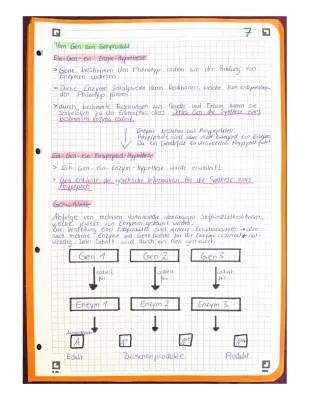 7
Vom Gen zum Genprodukt
Ein-Gen-ein-Enzym-Hypothese
> Gene bestimmen den Phänotyp, indem sie die Bildung von
Enzymen
> Diese Enzyme katalysieren dann Reaktionen, welche zum entsprechenden
den Phänotyp führen
> durch bestimmte Forschungen von und Tatum kamen sie
schließlich zu der Erkenntnis, dass jedes Gen die Synthese eines
bestimmten Enzyms codiert.
Enzyme bestehen aus Polypeptiden
Polypeptide sind aber nicht zwingend ein Enzym
Da ein Gendefekt zu Polypeptid führt
Ein-Gen-ein-Polypeptid-Hypothese
> Ein-Gen-ein-Enzym-Hypothese wurde erweitert!
> Gen enthält die genetische Information für die Synthese eines
Polypeptids
Abfolge von mehreren voneinander abhängigen Stoffwechselreaktionen,
welche jeweils von Enzymen gesteuert werden.
Zur Herstellung eines Endprodukts sind mehrere
auch mehrere Enzyme und Gene
Jeder Schritt wird durch ein Gen gesteuert.
Gen 1 Gen 2 Gen 3
codiert für codiert für codiert für
Enzym 1 Enzym 2 Enzym 3
A
Edukt Zwischenprodukte Produkt